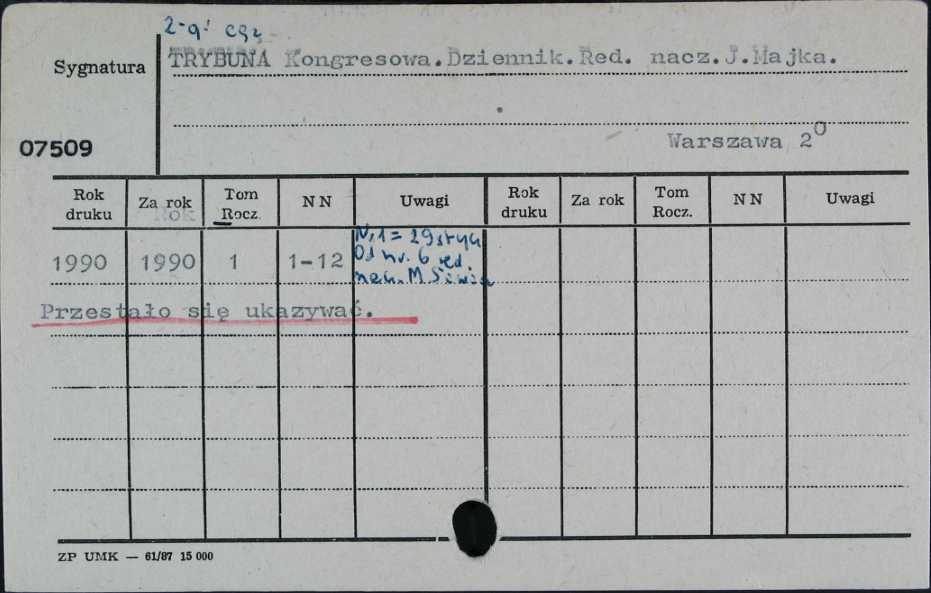 2-gi egz
Sygnatura
TRYBUNA Kongresowa.Dziennik.Red. nacz.J.Majka.
07509
Warszawa 2°
Rok druku Za rok Tom Rocz. NN Uwagi Rok druku Za rok Tom Rocz. NN Uwagi
Rok
1990 1990 1 1-12
Nr 1 = 29 stycz
Od nr. 6 red
nacz. M. Siwiec
Przestało się ukazywać.
ZP UMK — 61/87 15 000